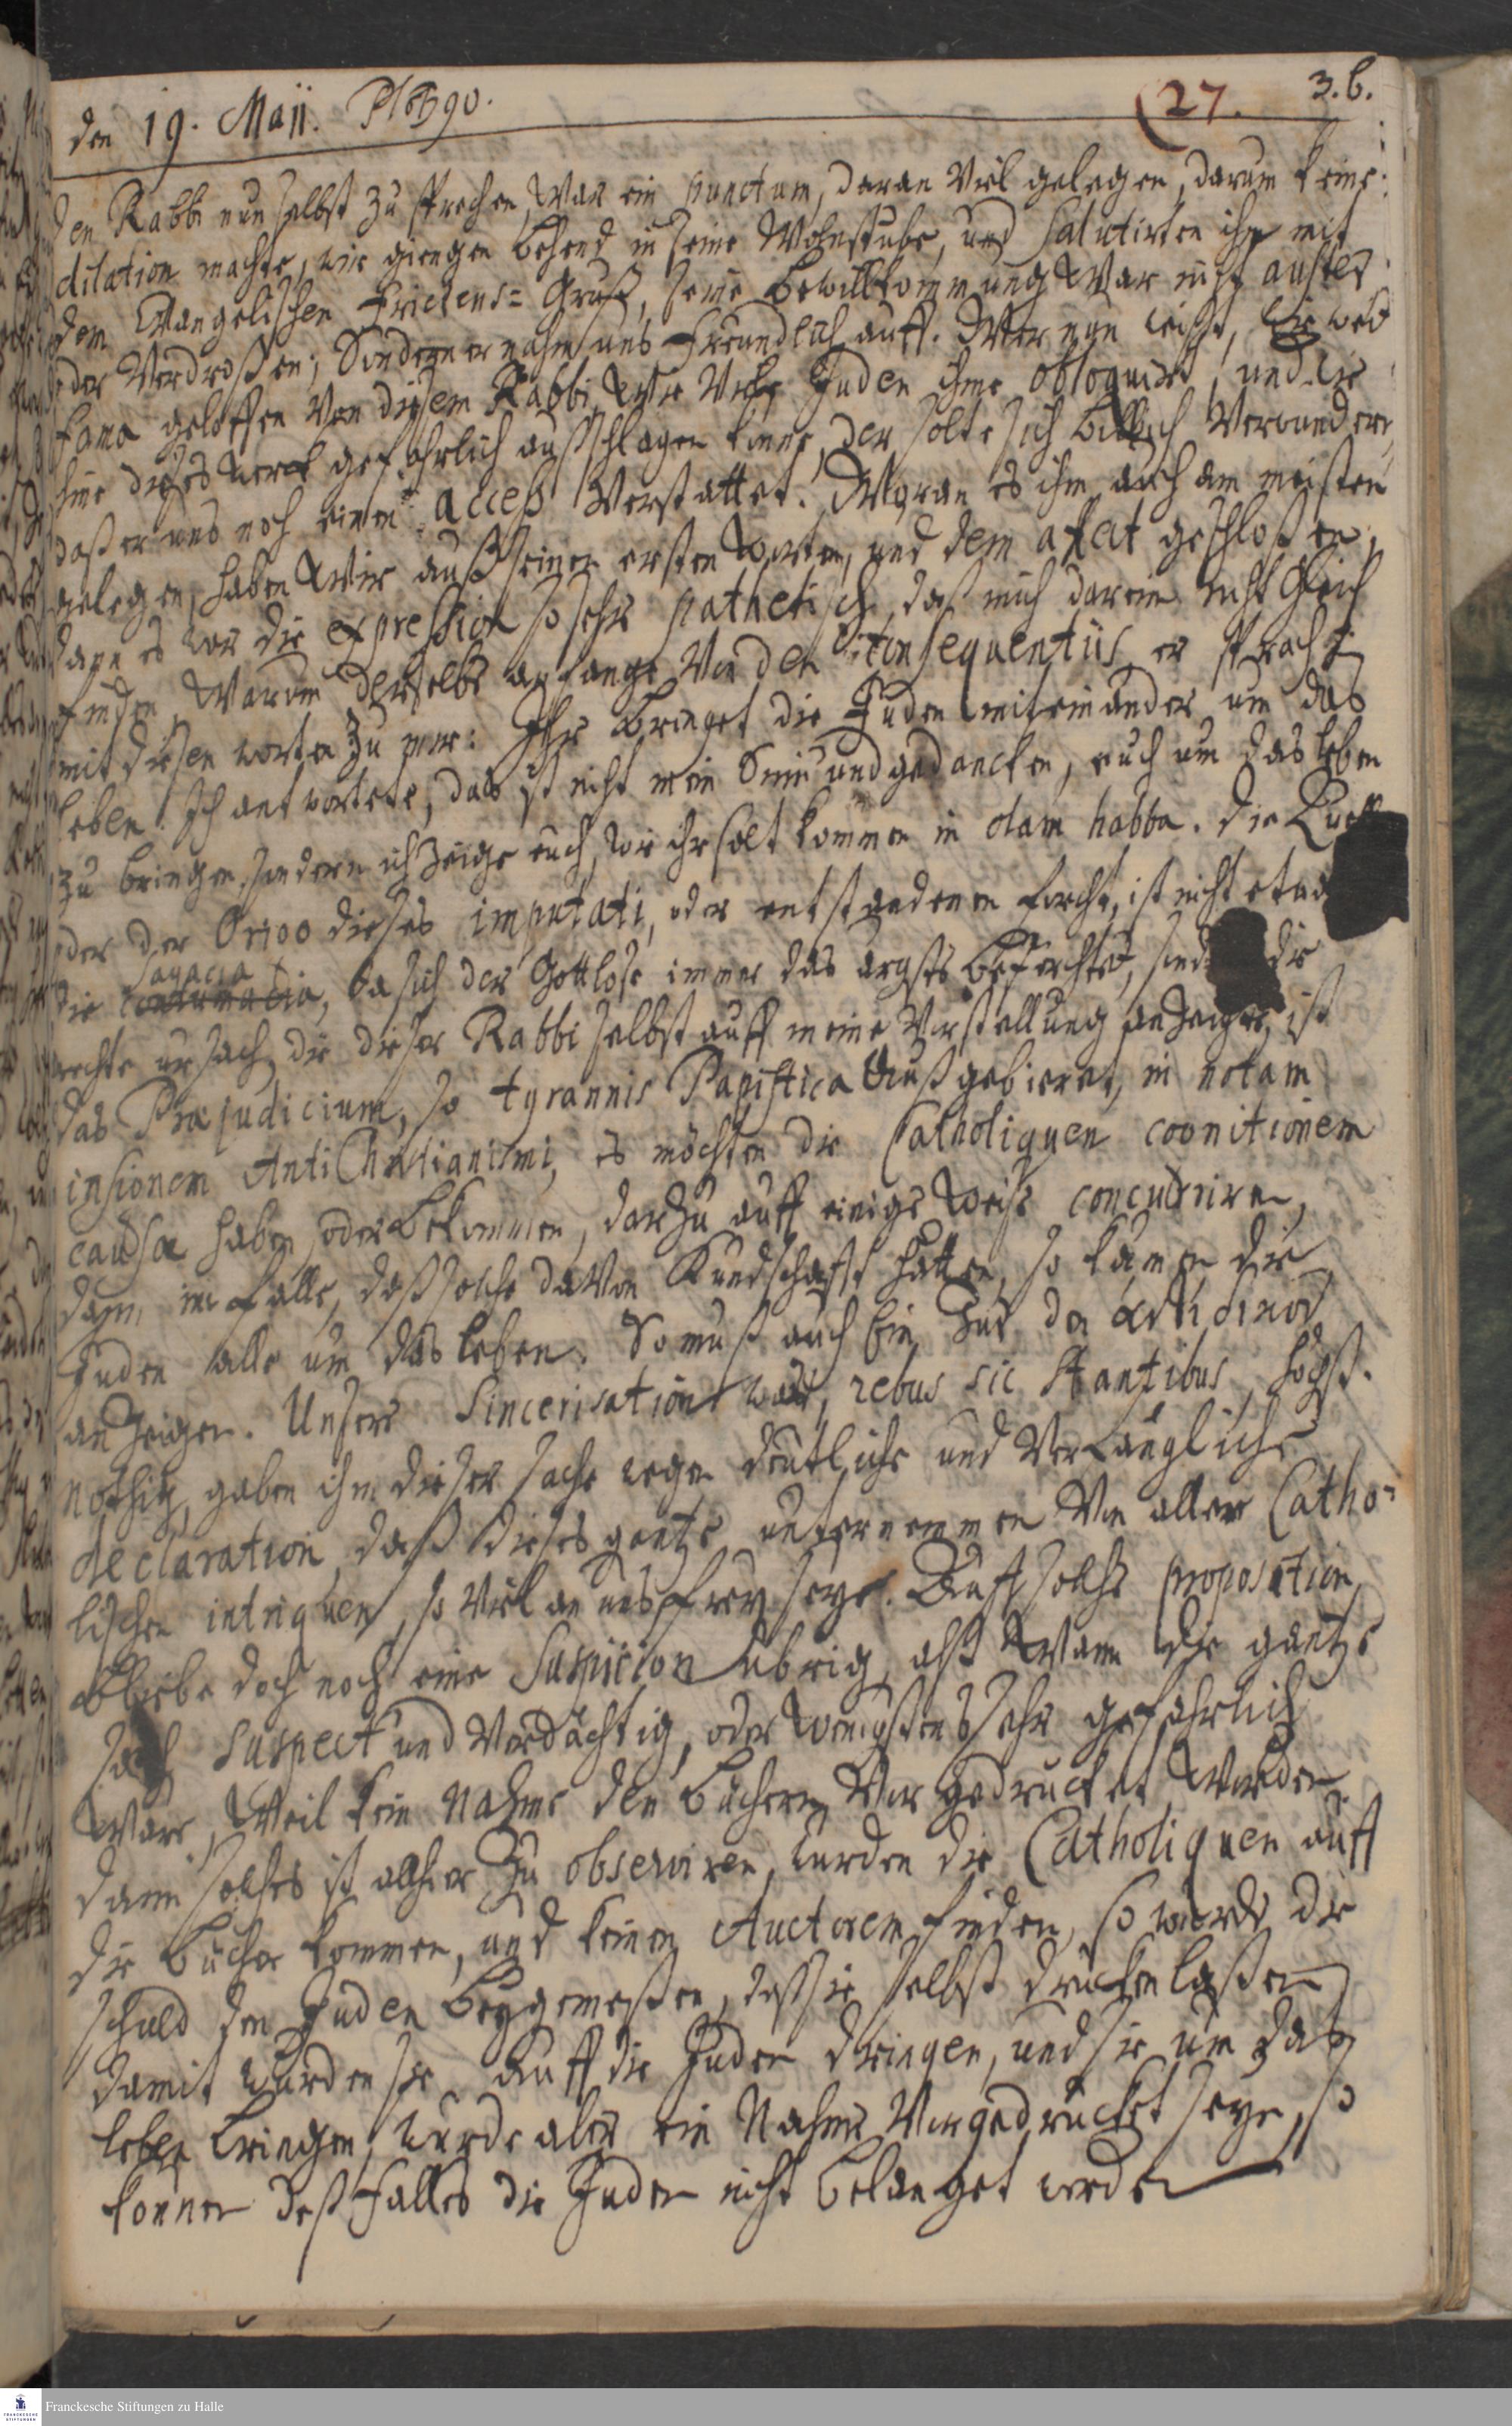 den 19. Maji. 27. 3. b.
den Rabbi nun selbst zu sprechen, war ein punctum, daran Viel gelegen, darum keine
dilation machte, wir giengen behend in seine Wohnstube, und salutirten ihn mit
dem Evangelischen Friedens-Gruß, seine bewillkommung war nicht
oder Verdroßen; Sondern er nahm uns freundlich auff. Wer nun weißt,
fama geloffen Von diesem Rabbi, wie Viele Juden ihme obloquirt, und wie
ihme dießes werck gefährlich außschlagen könne, der solte sich billich Verwundern,
daß er uns noch einen acceß Verstattet. Woran es ihm auch am meisten
gelegen, haben wir auß seinen ersten worten, und dem geschloßen,
dann es war die expression so sehr pathetisch, daß mich darein nicht gleich
finden, warum derselbe anfange Von den consequentiis, er sprach
mit diesen worten zu mir: Ihr bringet die Juden miteinander um das
leben. Ich antwortete, das ist nicht mein Sinn und gedancken, euch um das leben
zu bringen, sondern ich zeige euch, wie ihr solt kommen in olam habba. Die
oder der Origo dieses imputati, oder entstandenen forcht, ist nicht etwa
die sagacia, da sich der Gottlose immer das ärgste befürchtet, die
rechte ursach, die dieser Rabbi selbst auff meine Vorstellung anzeigte, ist
das Præjudicium, so tyrannis Papistica außgebieret, in notam
insionem AntiChristianismi, es möchten die Catholiquen cognitionem
causæ haben, oder bekommen, darzu auff einige weise concurriren,
dann im falle, daß solche davon Kundschafft hätten, so kämen die
Juden alle um das leben. So muß auch ein Jud da
anzeigen. Unsere Sincerisation war, rebus sic stantibus, höchst-
nöthig, gaben ihm dieser sache wegen deutliche und Verlängliche
declaration, daß dieses gantze unternemmen Von allen Catho-
lischen intriguen, so viel an uns frey seye. Auff solche proposition
bliebe doch noch eine Suspicion übrig, alß wann die gantze
sach suspect und Verdächtig, oder wenigstens sehr gefährlich
wäre, weil kein Nahme den büchern Vorgedrucket worden.
dann solches ist allhier zu observiren, wurden die Catholiquen auff
die bücher kommen, und keinen Auctorem finden, so würde die
schuld den Juden beygemeßen, daß sie selbst drucken laßen,
damit würden sie auff die Juden dringen, und sie um das
leben bringen, wurde aber ein Nahme Vorgedrucket seyn, so
können deßfalles die Juden nicht belanget werden
Franckesche Stiftungen zu Halle